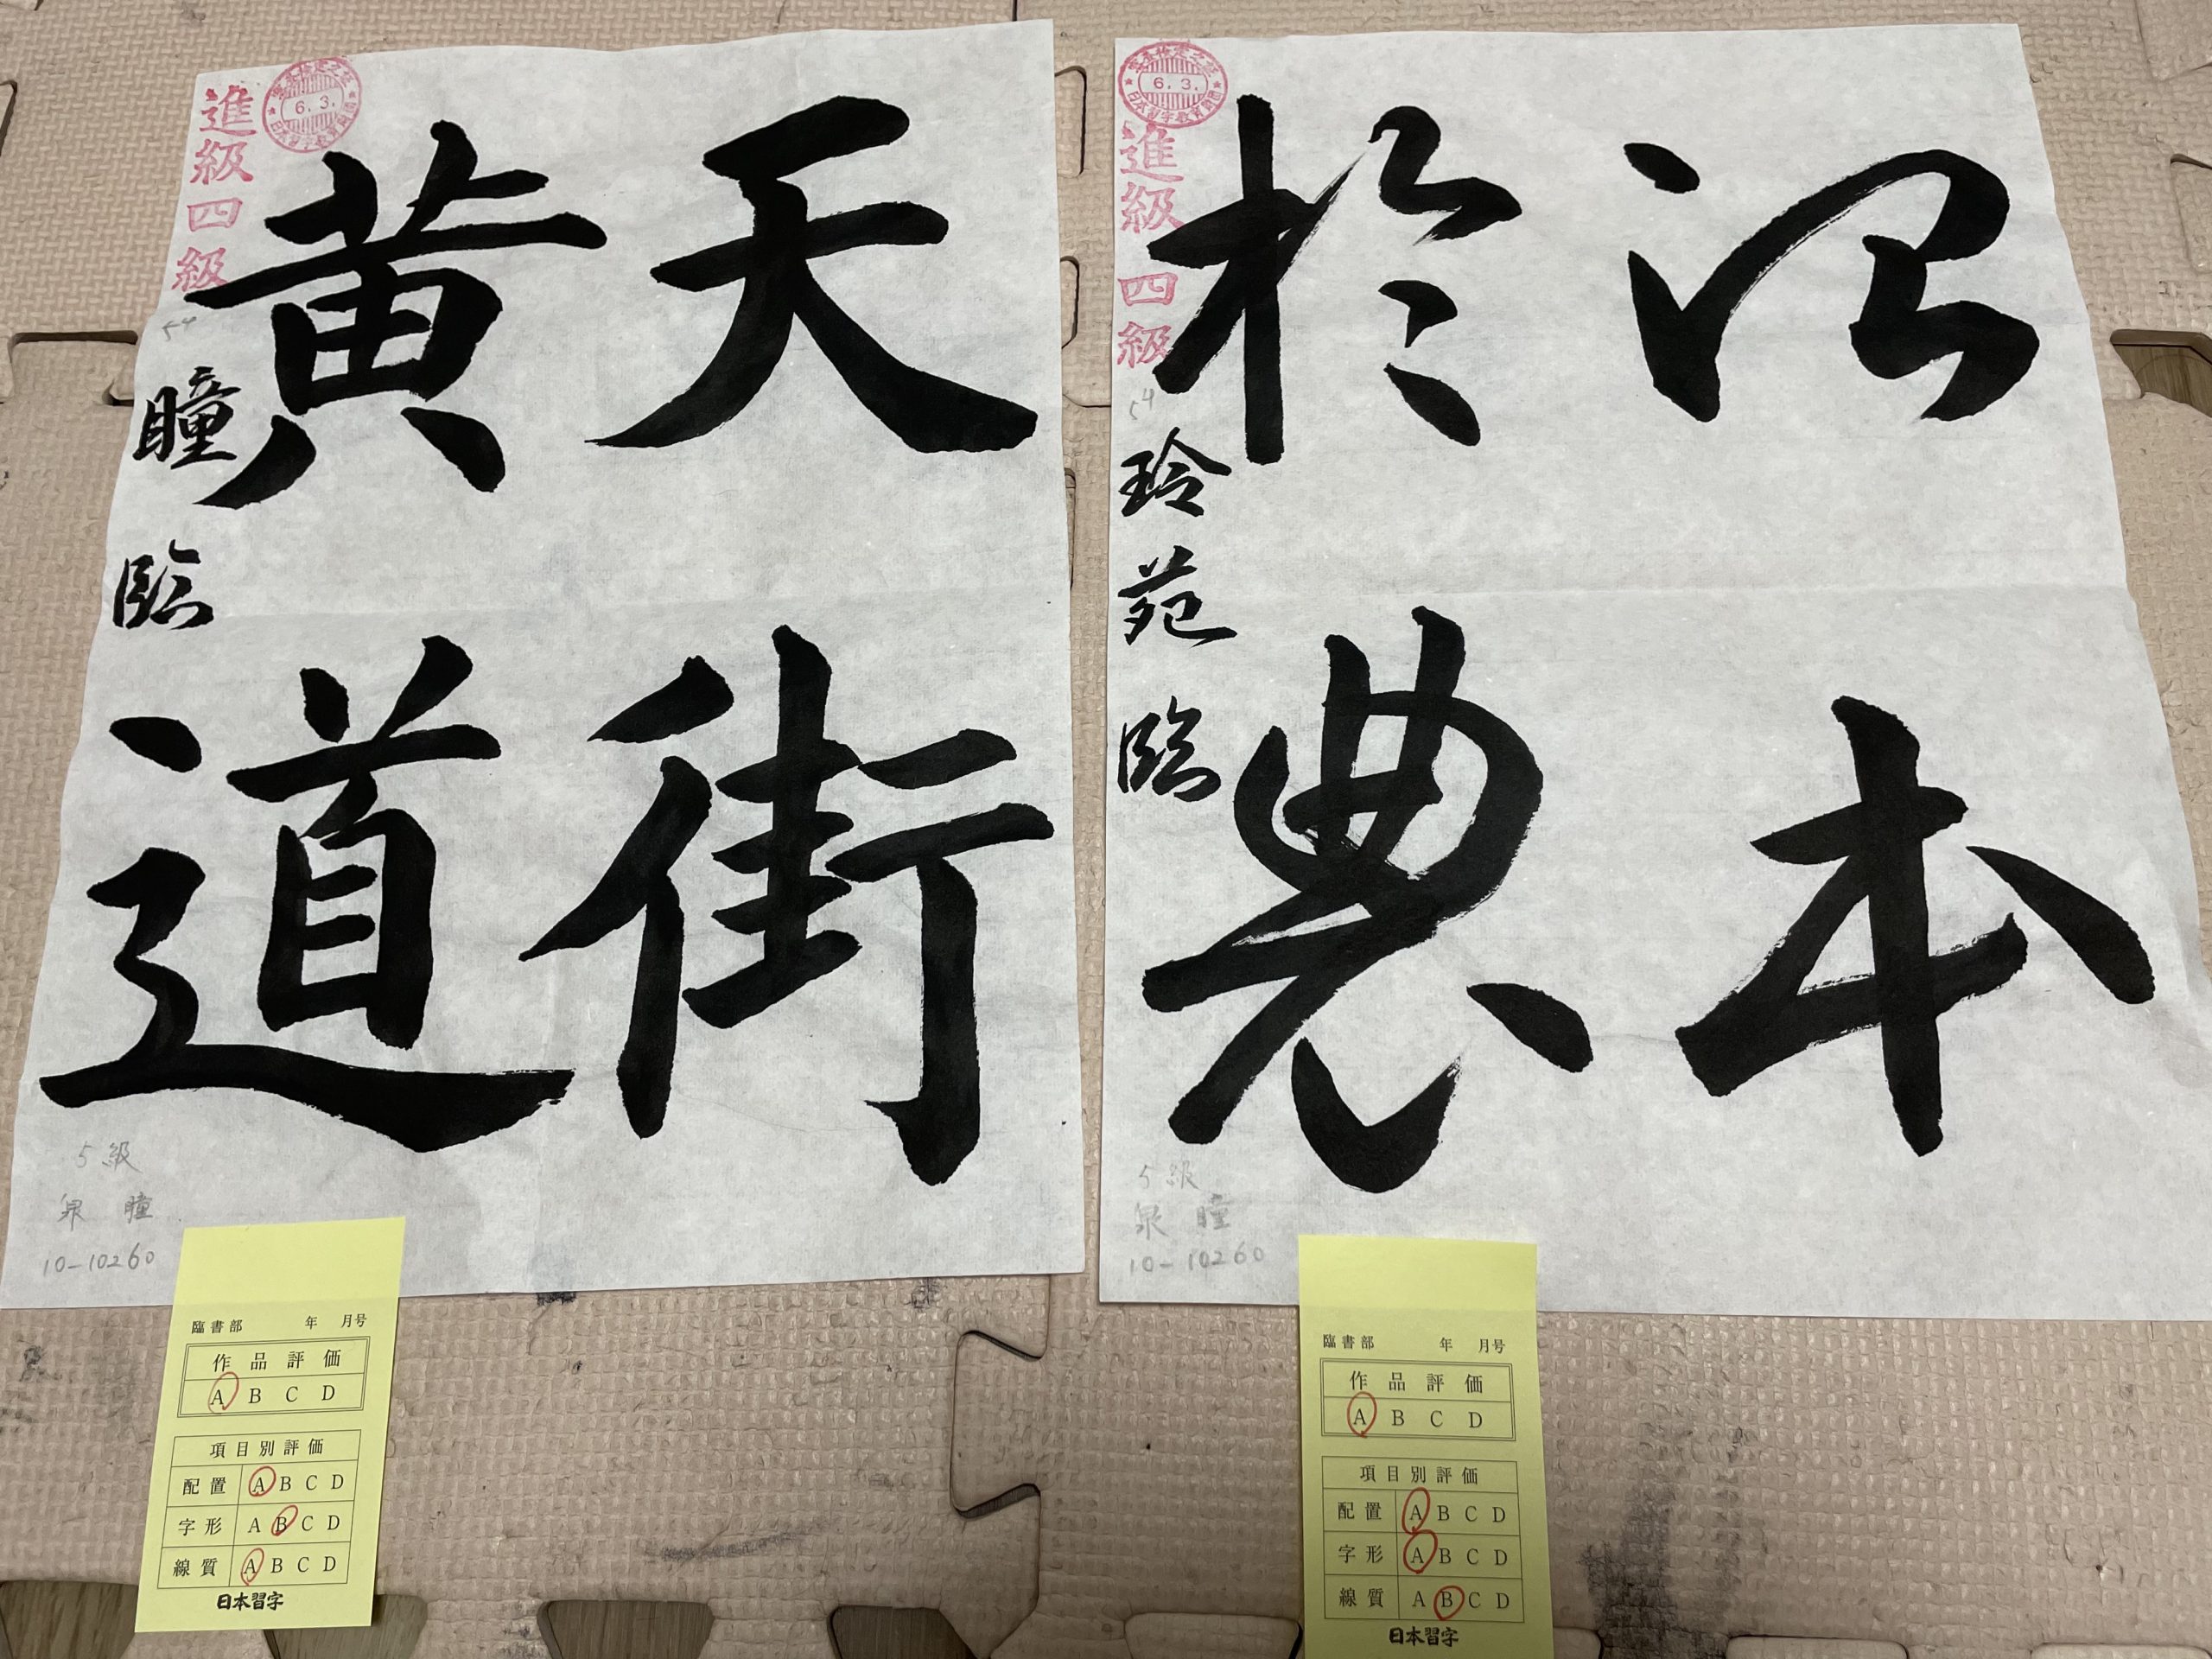 天街
黄道
瞳臨
進級四級
6.3.
日本習字教育財団
5級
泉 瞳
10-10260
臨書部 年 月号
作品評価
A B C D
項目別評価
配置 A B C D
字形 A B C D
線質 A B C D
日本習字
治本
於農
玲苑臨
進級四級
6.3.
日本習字教育財団
54
5級
泉 瞳
10-10260
臨書部 年 月号
作品評価
A B C D
項目別評価
配置 A B C D
字形 A B C D
線質 A B C D
日本習字